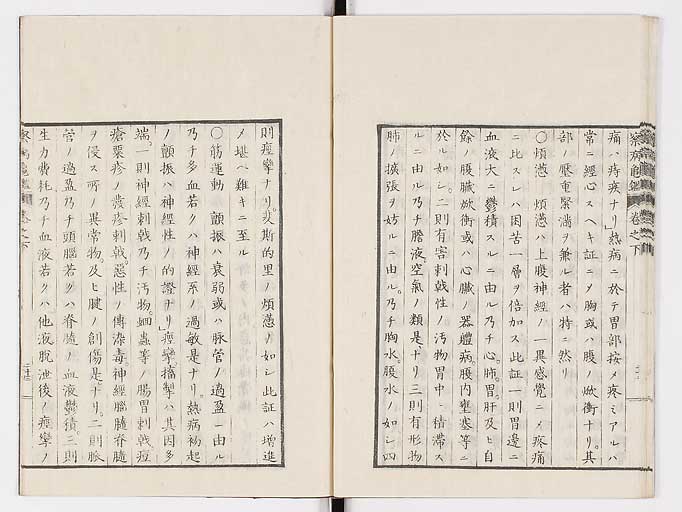 察病龜鑑 卷之下
痛ハ痔疾ナリ」熱病ニ於テ胃部按メ疼ミアルハ
常ニ經心スヘキ証ニメ胸或ハ腹ノ焮衝ナリ其
部ノ壓重緊滿ヲ兼ル者ハ特ニ然リ
〇煩懣 煩懣ハ上腹神經ノ一異感覺ニメ疼痛
ニ比スレハ困苦一層ヲ倍加ス此証一則胃邊ニ
血液大ニ鬱積スルニ由ル乃チ心肺胃肝及ヒ自
餘ノ腹臟焮衝或ハ心臟ノ器體病腹内壅塞等ニ
於ル如シ二則有害刺戟性ノ汚物胃中ニ積滯ス
ルニ由ル乃チ膽液空氣ノ類是ナリ三則有形物
肺ノ擴張ヲ妨ルニ由ル乃チ胸水腹水ノ如シ四
則痙攣ナリ歇斯的里ノ煩懣ノ如シ此証ハ増進
メ堪ヘ難キニ至ル
〇筋運動 顫振ハ衰弱或ハ脉管ノ過盈ニ由ル
乃チ多血若クハ神經系ノ過敏是ナリ熱病初起
ノ顫振ハ神經性ノ的證ナリ」痙攣搐搦ハ其因多
端一則神經刺戟乃チ汚物蛔蟲等ノ腸胃刺戟痘
瘡粟疹ノ發疹刺戟惡性ノ傳染毒神經腦髓脊髓
ヲ侵ス所ノ異常物及ヒ腱ノ創傷是ナリ二則脉
管ノ過盈乃チ頭腦若クハ脊髓ノ血液鬱積三則
生力費耗乃チ血液若クハ他液脱泄後ノ痙攣ノ